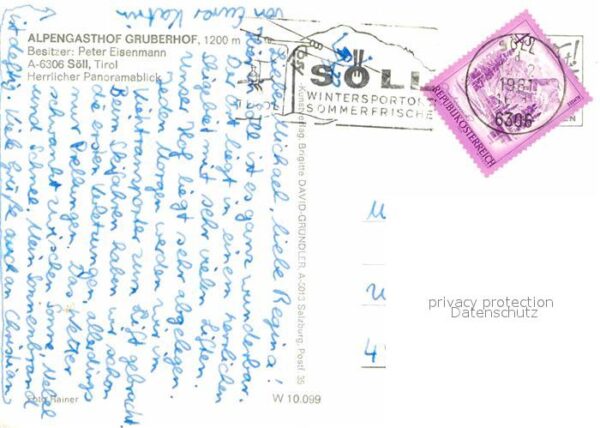 ALPENGASTHOF GRUBERHOF, 1200 m
Besitzer: Peter Eisenmann
A-6306 Söll, Tirol
Herrlicher Panoramablick
SÖLL
WINTERSPORTO
SOMMERFRISCHE
SÖLL
6306
REPUBLIK ÖSTERREICH
Lieber Michael, liebe Regina!
Hier in Söll ist es ganz wunderbar.
Der Ort liegt in einem herrlichen
Skigebiet mit sehr vielen Liften.
Unser Hof liegt sehr abgelegen
jeden Morgen werden wir im
zum Lift gebracht.
Beim Skifahren haben wir schon
die ersten allerdings
Das Wetter
schwankt zwischen Sonne, Nebel
und Schnee. Mein Sonnenbrand
Viele Grüße auch an Christian
von Eurer Katrin
Kunstverlag Brigitte DAVID-GRÜNDLER, A-5013 Salzburg, Postf. 35
Foto Rainer
W 10.099
privacy protection
Datenschutz